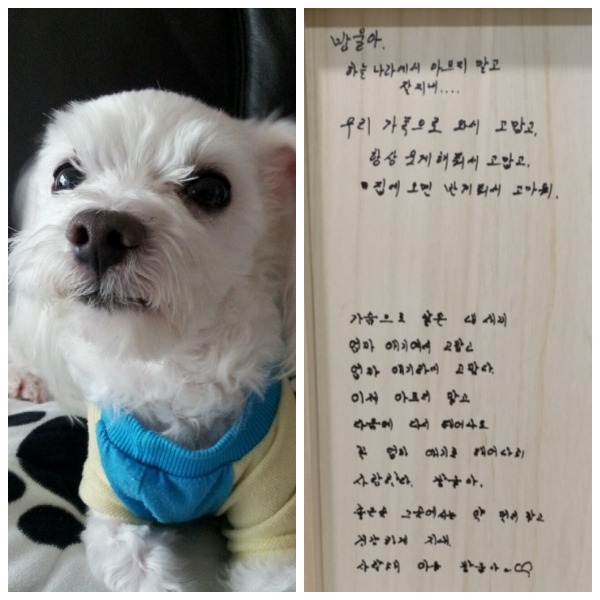 방울아.
하늘나라에서 아프지 말고
잘지내....
우리 가족으로 와서 고맙고,
항상 웃게해줘서 고맙고,
집에 오면 반겨줘서 고마워.
가슴으로 낳은 내 새끼
엄마 애기여서 고맙고
엄마 애기라서 고맙다.
이제 아프지 말고
다음에 다시 태어나도
꼭 엄마 애기로 태어나줘
사랑한다. 방울아.
좋은곳 그곳에서는 약 먹지 말고
건강하게 지내
사랑해 아가 방울아~♡